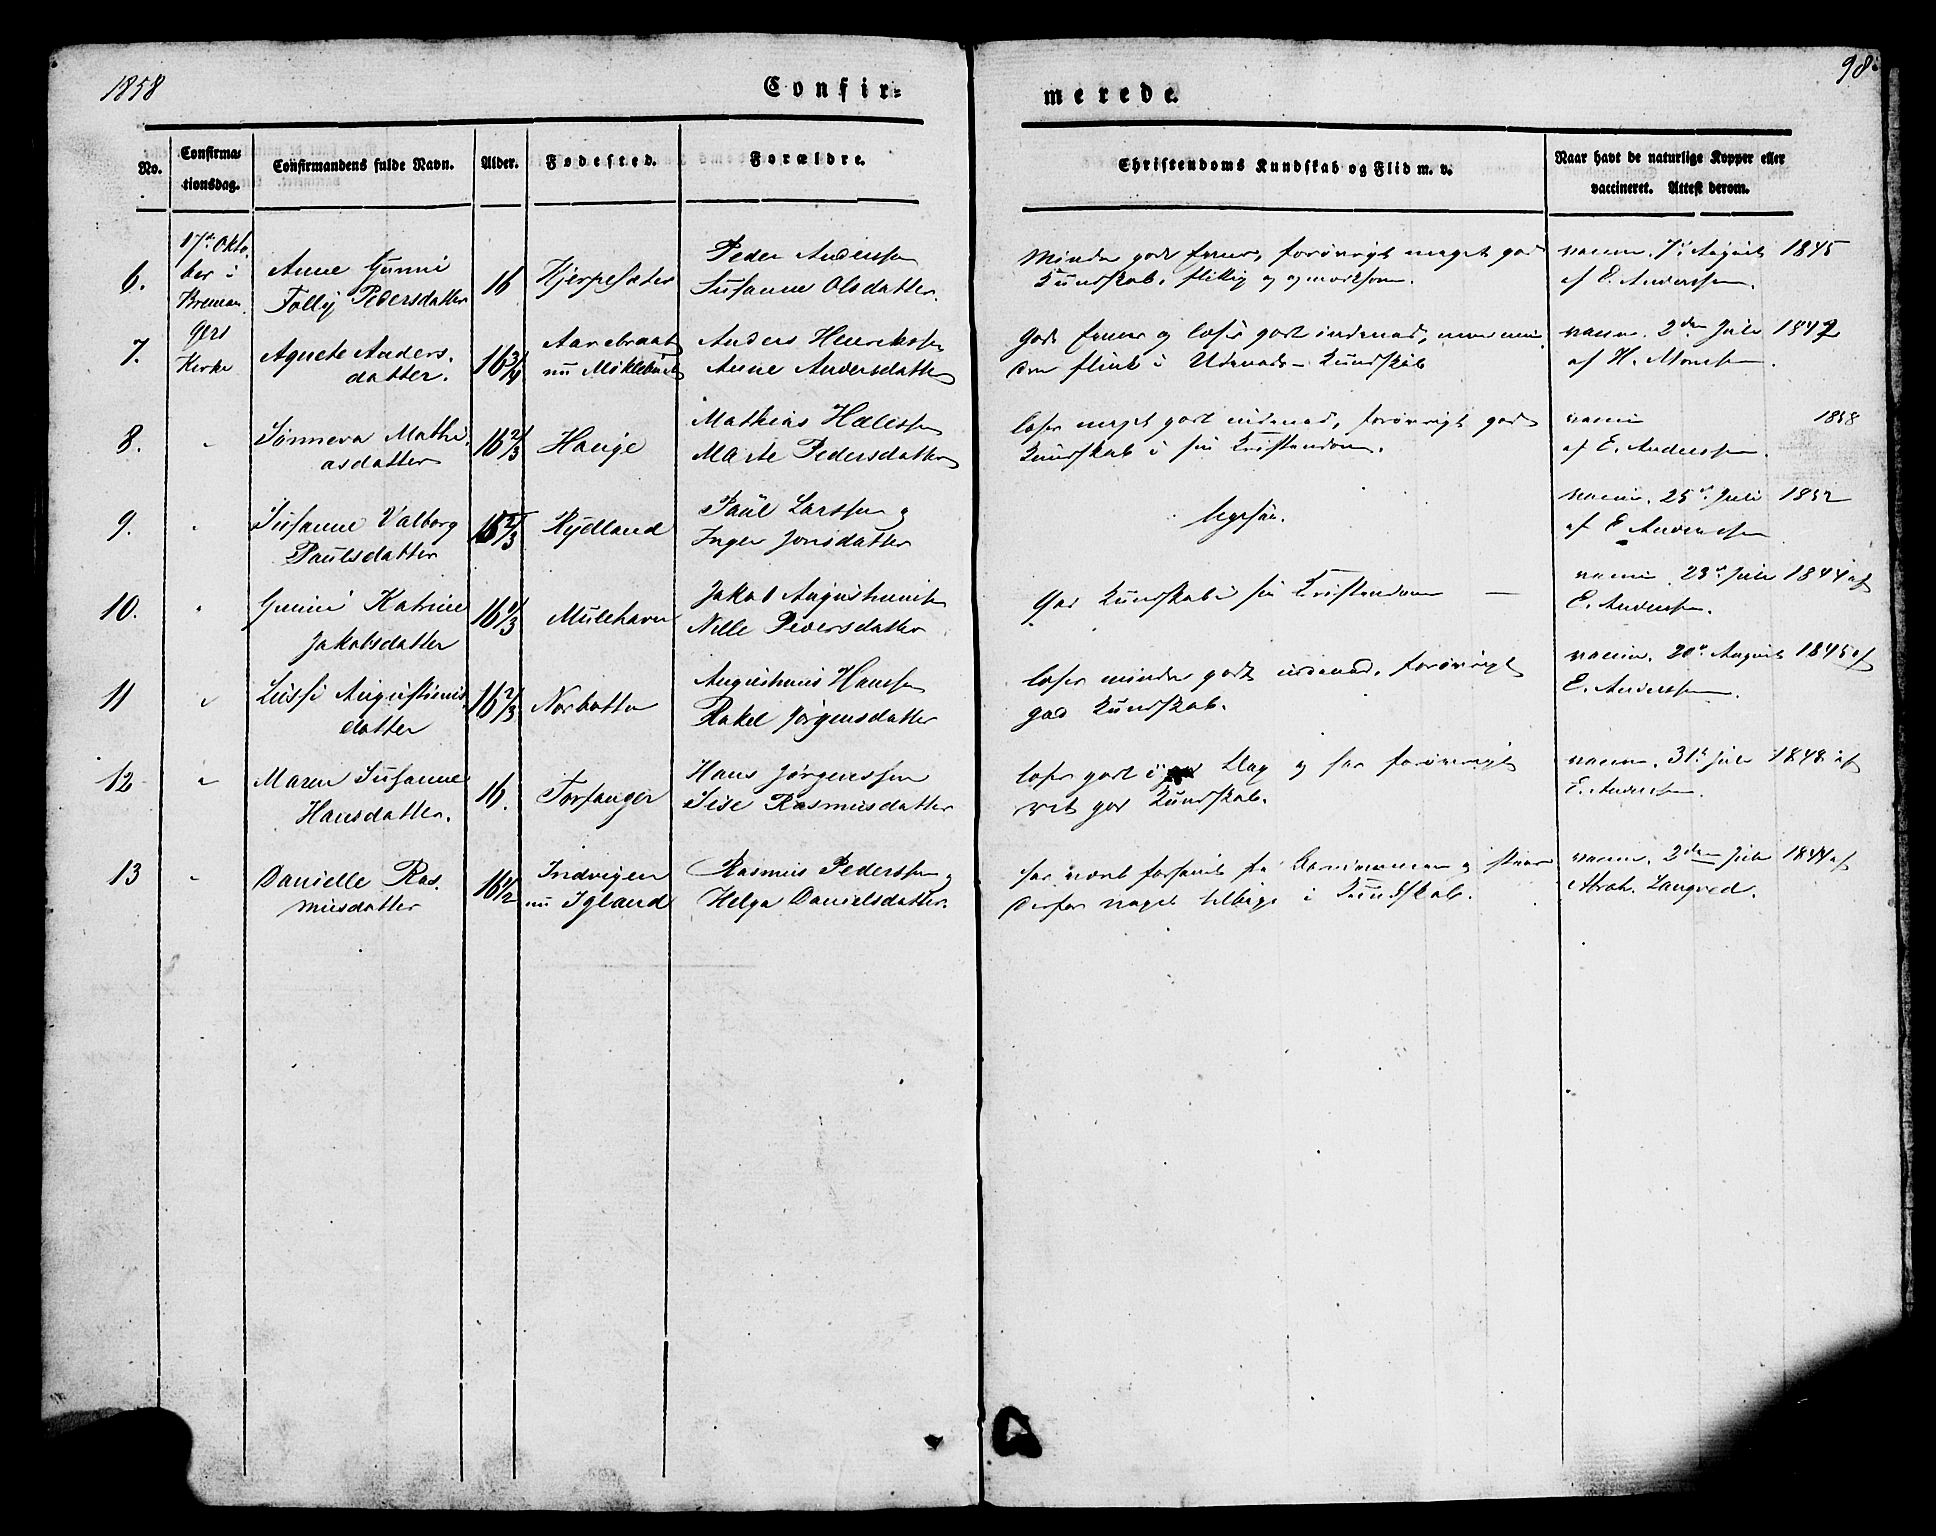 1858
Confir=
merede.
98.
No.
Confirma=
tionsdag.
Confirmandens fulde Navn.
Alder.
Fødested.
Forældre.
Christendoms Kundskab og Flid m. v.
Naar havt de naturlige Kopper eller
vaccineret. Attest derom.
17de Okto-
ber i
Breman-
gers
Kirke
6.
Anne Gunni
Folly Pedersdatter
16
Hjerpesæter
Peder Anderssen
Susanne Olsdatter.
Minder godt Evner, forøvrigt meget god
Kundskab, flittig og opmærksom.
vaccin. 7de August 1845
af E. Anderssen.
7.
Agnete Anders-
datter.
16 3/4
Aarebraat
nu Møklebust
Anders Henrikssen
Anne Andersdatter
Gode Evner og læser godt indenad, men min-
dre flink i Udenads-Kundskab
vaccin. 2den Juli 1842
af H. Monsen.
8.
"
Sønneva Mathi-
asdatter
16 2/3
Hauge
Mathias Hælessen
Marte Pedersdatter
læser meget godt indenad, forøvrigt god
Kundskab i sin Kristendom.
vaccin 1858
af E. Anderssen.
9.
"
Susanne Valborg
Paulsdatter
16 2/3
Rydland
Paul Larssen og
Inger Jonsdatter
ligesaa.
vaccin. 25de Juli 1852
af E Anderssen
10.
"
Gunni Katrine
Jakobsdatter
16 1/3
Mulehavn
Jakob Augustinussen
Nille Pedersdatter
God Kundskab i sin Kristendom —
vaccin. 23de Juli 1844 af
E. Anderssen.
11
"
Lussi Augustinus-
datter
16 2/3
Norbotten
Augustinus Hanssen
Rakel Jørgensdatter
læser mindre godt indenad, forøvrigt
god Kundskab.
vaccin. 20de August 1845 af
E. Anderssen.
12
"
Maren Susanne
Hansdatter.
16.
Torfanger
Hans Jørgenssen
Sise Rasmusdatter
læser godt i Dag og har forøvrigt
ret god Kundskab.
vaccin. 31te Juli 1848 af
E. Anderssen.
13
"
Danielle Ras-
musdatter
16 1/2
Indvigen
nu Igland
Rasmus Pederssen og
Helga Danielsdatter.
har været forsømt fra Barndommen og staar
derfor noget tilbage i Kundskab.
vaccin. 2den Juli 1844 af
Abrah. Langved.